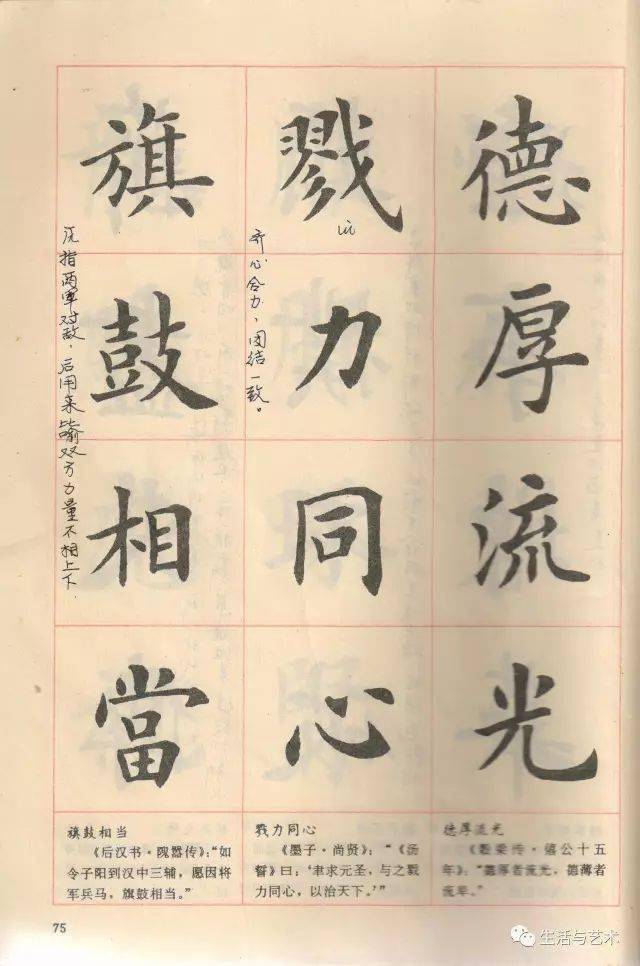 德厚流光
戮力同心
齐心合力，团结一致。
旗鼓相當
指两军对敌，后用来比喻双方力量不相上下
德厚流光
《穀梁传·僖公十五
年》：“德厚者流光，德薄者
流卑。”
戮力同心
《墨子·尚贤》：“《汤
誓》曰：‘聿求元圣，与之戮
力同心，以治天下。’”
旗鼓相当
《后汉书·隗嚣传》：“如
令子阳到汉中三辅，愿因将
军兵马，旗鼓相当。”
75
生活与艺术